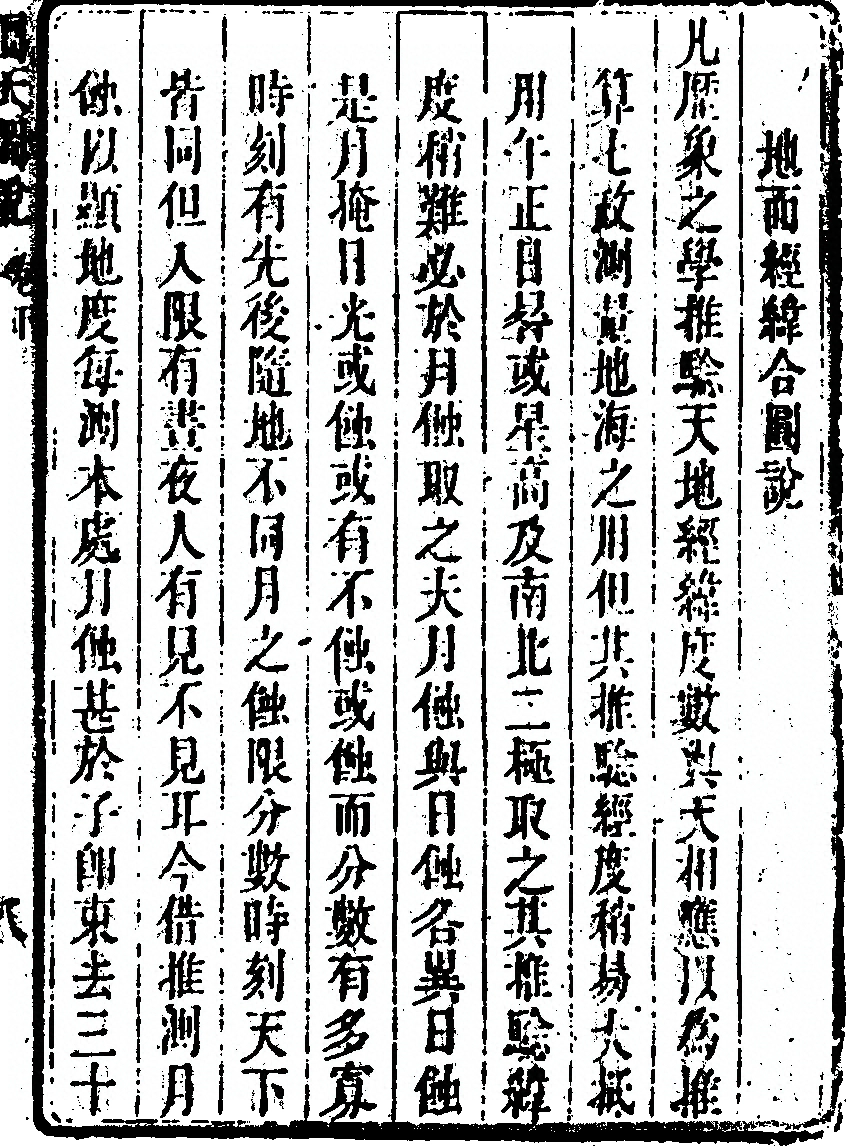 地面經緯合圖說
凡歷象之學推驗天地經緯度數與天相應以為推
算七政測量地海之用但其推驗經度稍易大抵
用午正日晷或星高及南北二極取之其推驗緯
度稍難必於月蝕取之夫月蝕與日蝕各異日蝕
是月掩日光或蝕或有不蝕或蝕而分數有多寡
時刻有先後隨地不同月之蝕限分數時刻天下
皆同但人限有晝夜人有見不見耳今借推測月
蝕以顯地度每測本處月蝕甚於子即東去三十
天圖說 卷